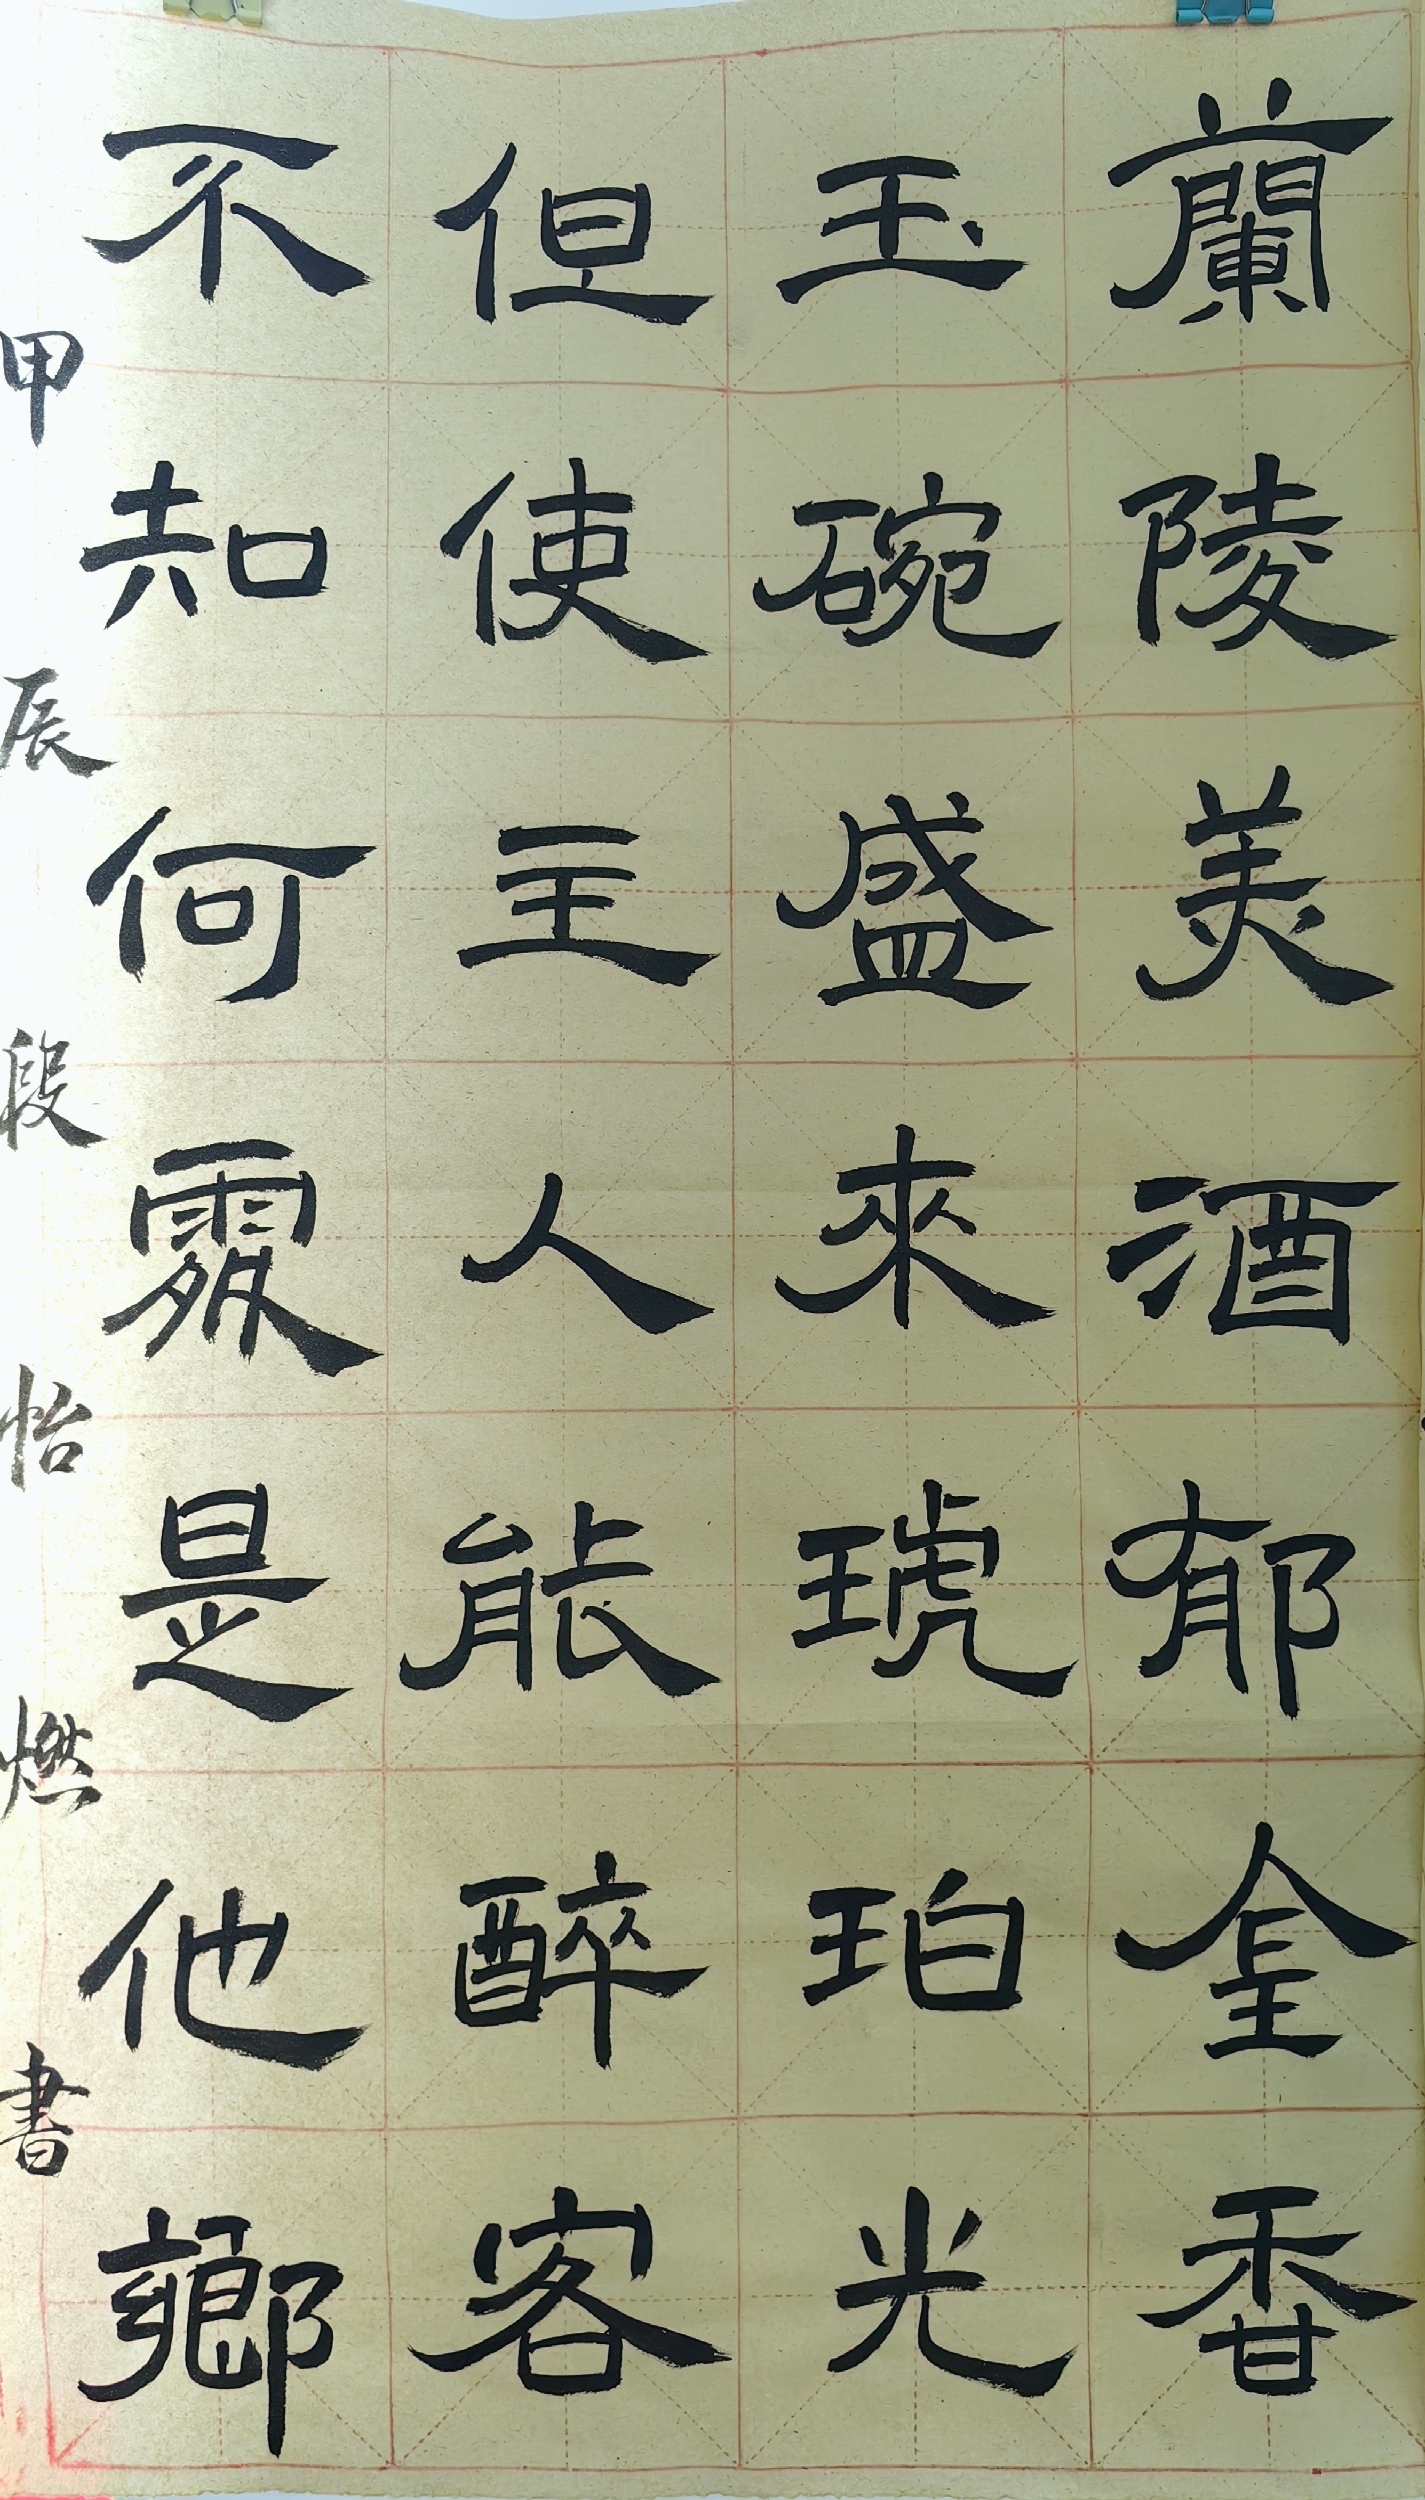 蘭陵美酒郁金香
玉碗盛來琥珀光
但使主人能醉客
不知何處是他鄉
甲辰段怡燃書